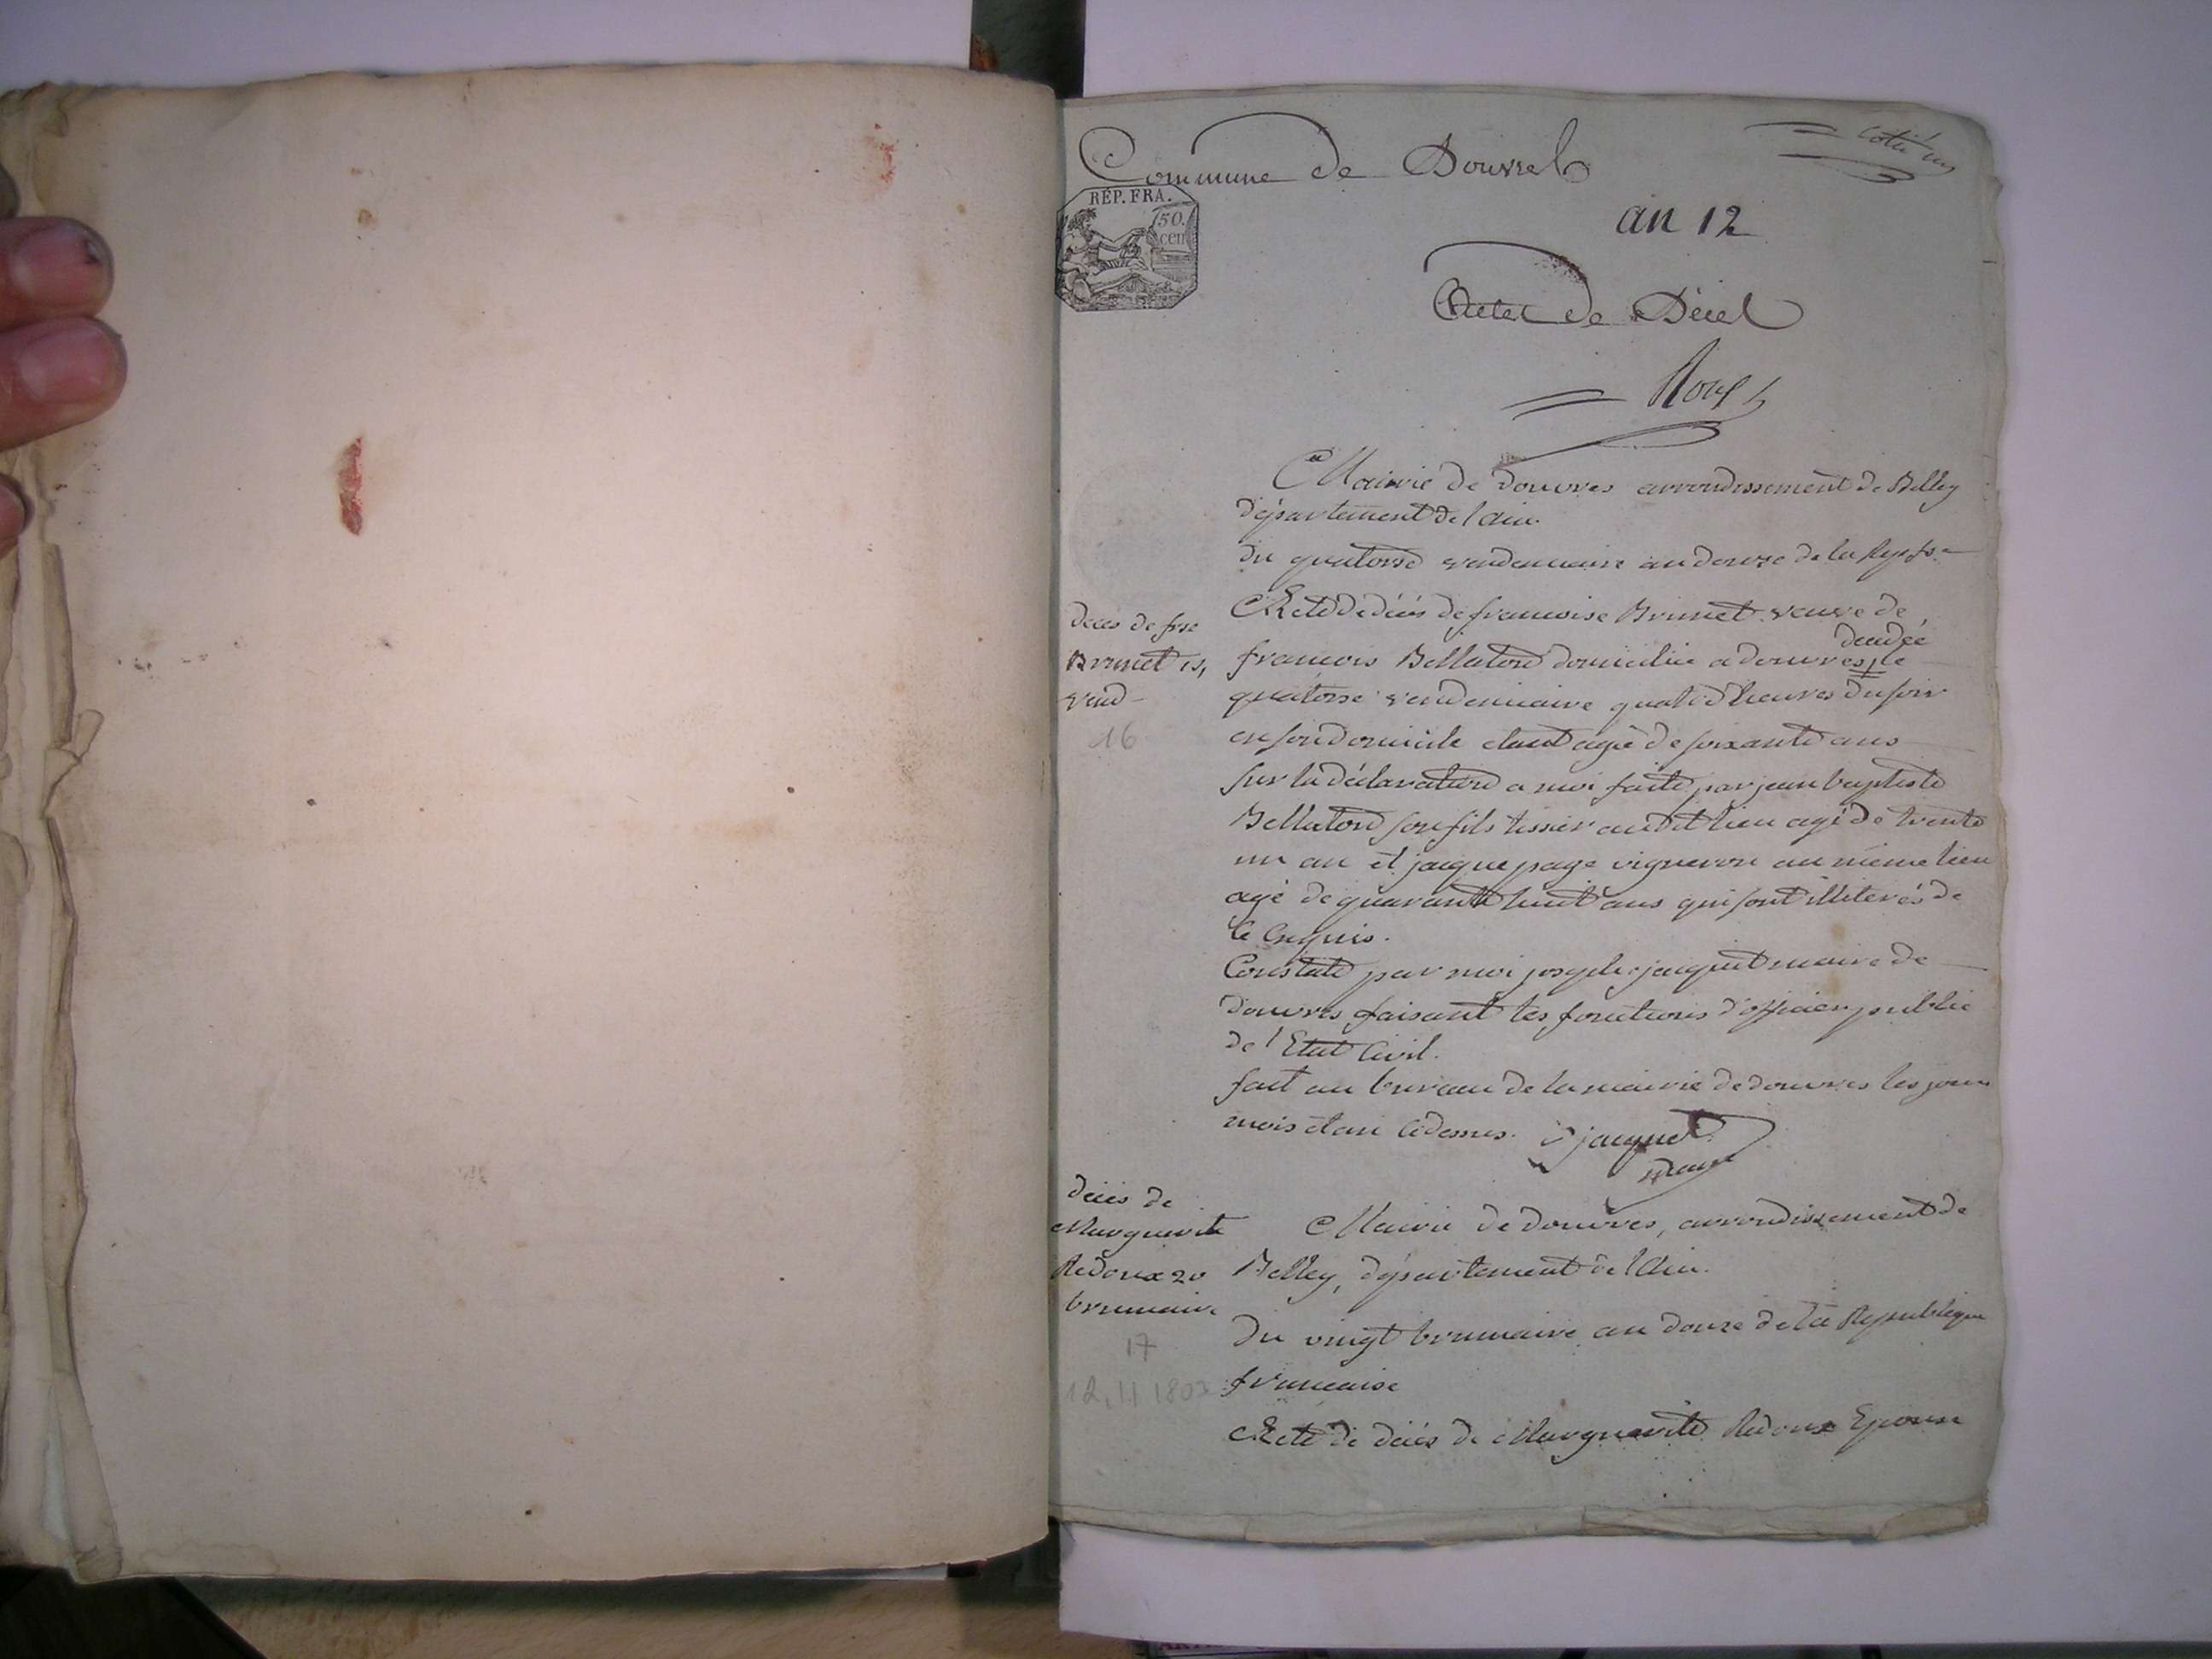 Commune de Douvres
Cotté un
RÉP. FRA.
50.
cen
an 12
Actes de Décès
Mairie de douvres arrondissement de Belley
département de l'ain.
du quatorse vendemiaire an douze de la Rep. fse
Decès de fse
Brunet 14
vend
16
Acte de décès de francoise Brunet veuve de
decedée
francois Bellaton domicilié a douvres le
quatorse vendemiaire quatre heures du soir
en son domicile etant agé de soixante ans
sur la déclaration a moi faite par jean baptiste
Bellaton son fils tissier audit lieu agé de trente
un an et jacque page vigneron au même lieu
agé de quarante huit ans qui sont illiterés de
ce Enquis.
Constaté par moi joseph jacquet maire de
douvres faisant les fonctions d'officier public
de l'Etat Civil.
fait au bureau de la mairie de douvres les jour
mois et an Cidessus. jacquet
maire
décès de
Marguerite
Redoux 20
brumaire
17
12.11 1803
Mairie de douvres, arrondissement de
Belley, département de l'Ain.
Du vingt brumaire an douze de la Republique
francaise
Acte de décès de Marguerite Redoux Epouse